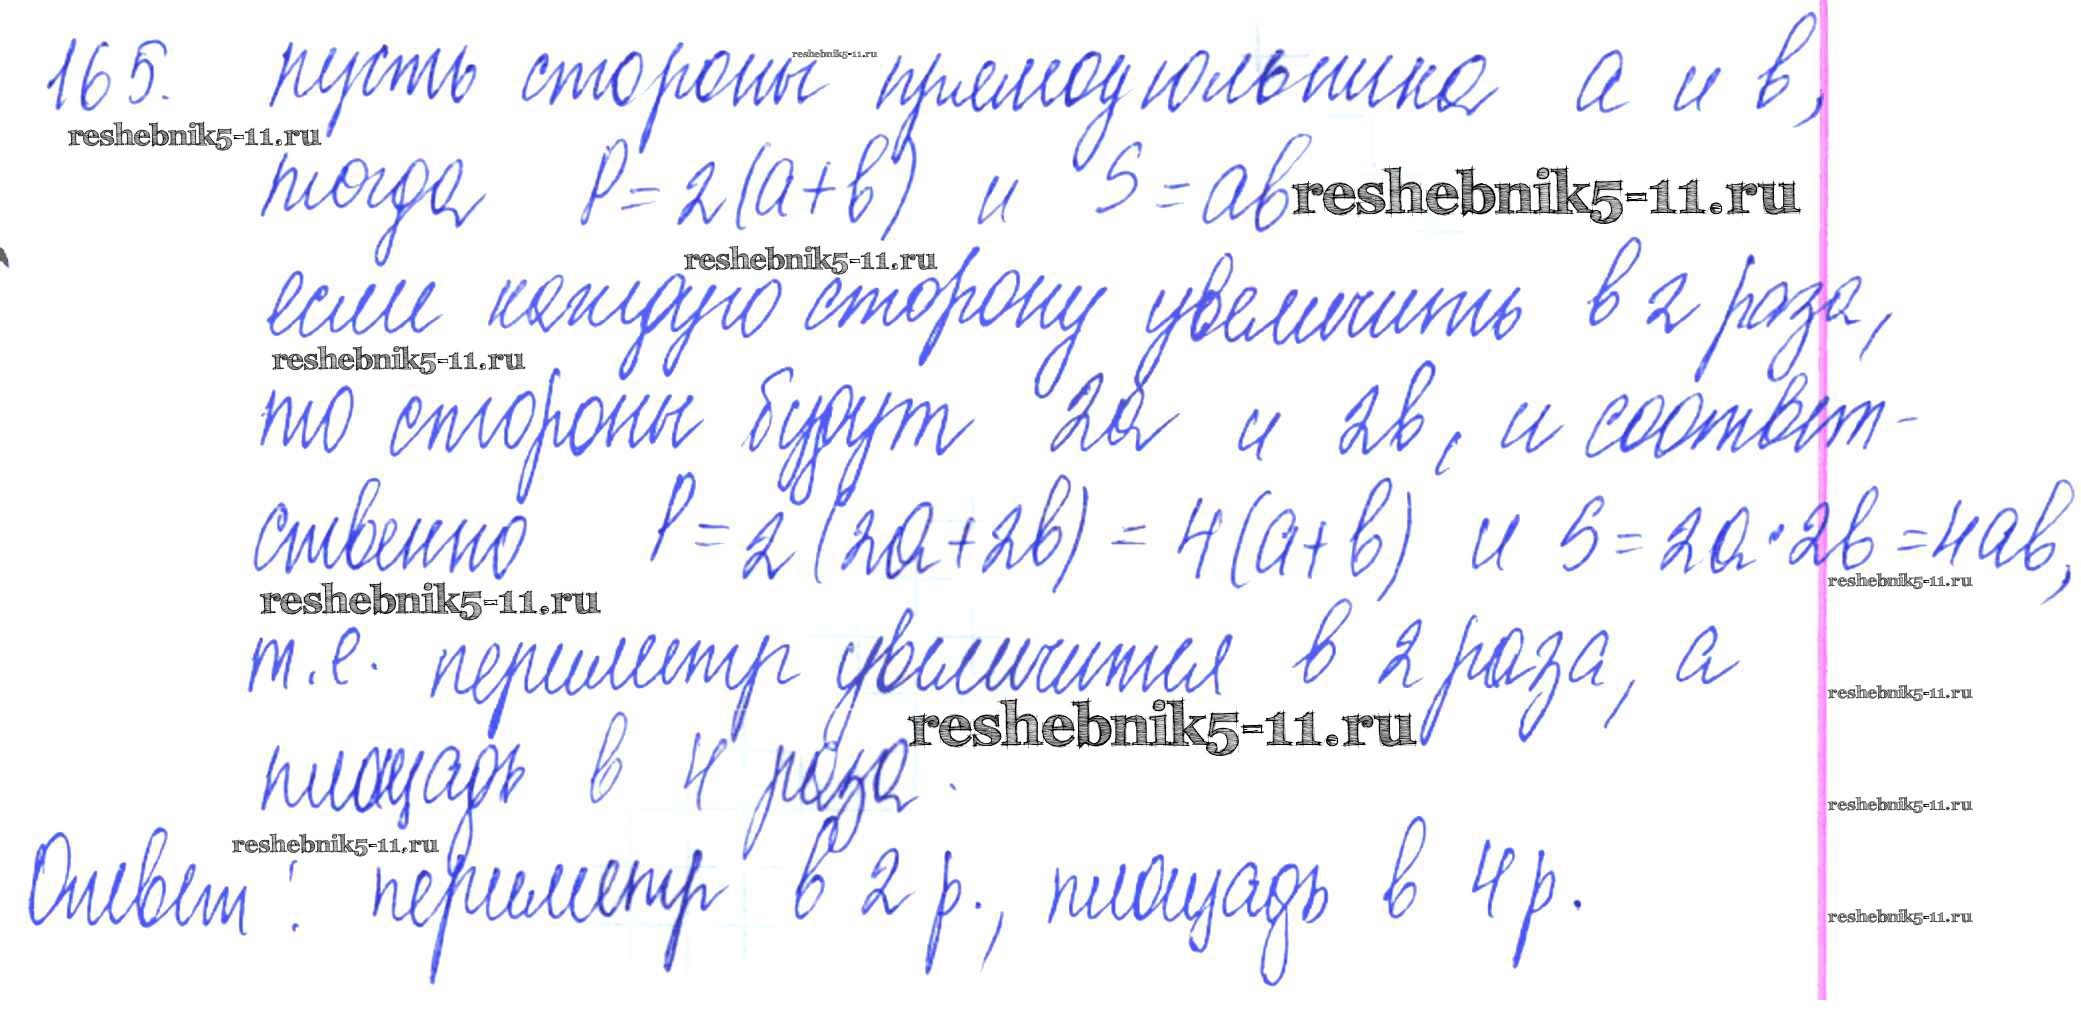 reshebnik5-11.ru
165. пусть стороны прямоугольника а и в,
reshebnik5-11.ru
тогда P = 2(а+в) и S = ав
reshebnik5-11.ru
reshebnik5-11.ru
если каждую сторону увеличить в 2 раза,
reshebnik5-11.ru
то стороны будут 2а и 2в, и соответ-
ственно P = 2(2а+2в) = 4(а+в) и S = 2а·2в = 4ав,
reshebnik5-11.ru
reshebnik5-11.ru
т.е. периметр увеличится в 2 раза, а
reshebnik5-11.ru
reshebnik5-11.ru
площадь в 4 раза.
reshebnik5-11.ru
reshebnik5-11.ru
Ответ: периметр в 2 р., площадь в 4 р.
reshebnik5-11.ru